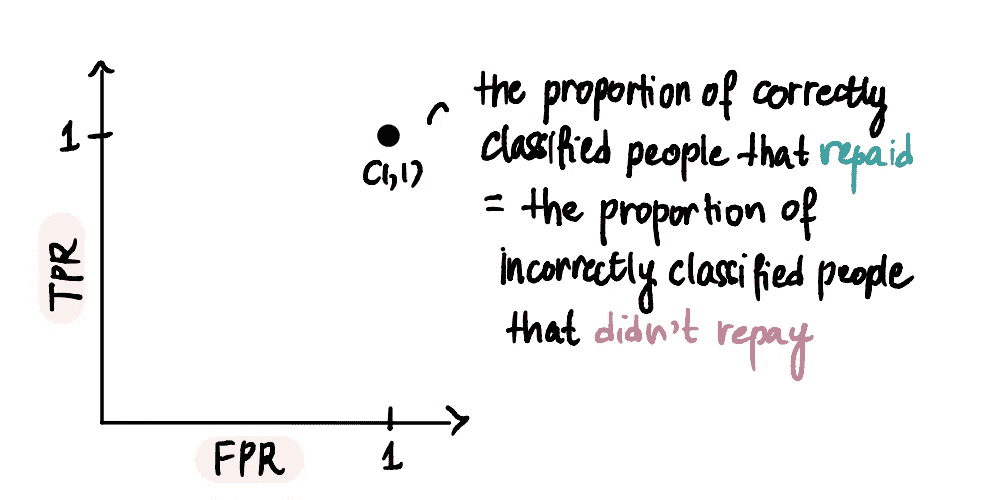 the proportion of correctly
classified people that repaid
= the proportion of
incorrectly classified people
that didn't repay
1
(1,1)
TPR
FPR
1